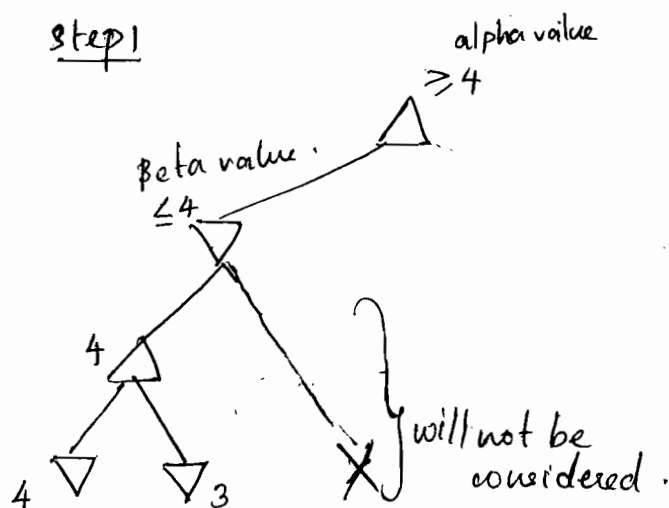 Step1
alpha value
≥ 4
Beta value.
≤ 4
4
4
3
will not be
considered.